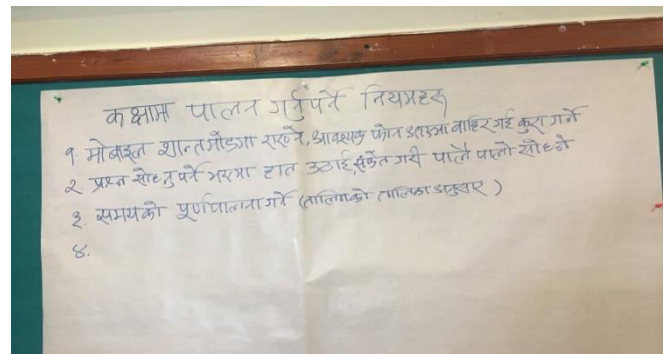 कक्षामा पालन गर्नुपर्ने नियमहरू
१. मोबाइल शान्तमोडमा राख्ने, आवश्यक फोन आएमा बाहिर गई कुरा गर्ने
२. प्रश्न सोध्नुपर्ने भएमा हात उठाई संकेत गरी पालै पालो सोध्ने
३. समयको पूर्णपालना गर्ने (तालिमको तालिका अनुसार)
४.